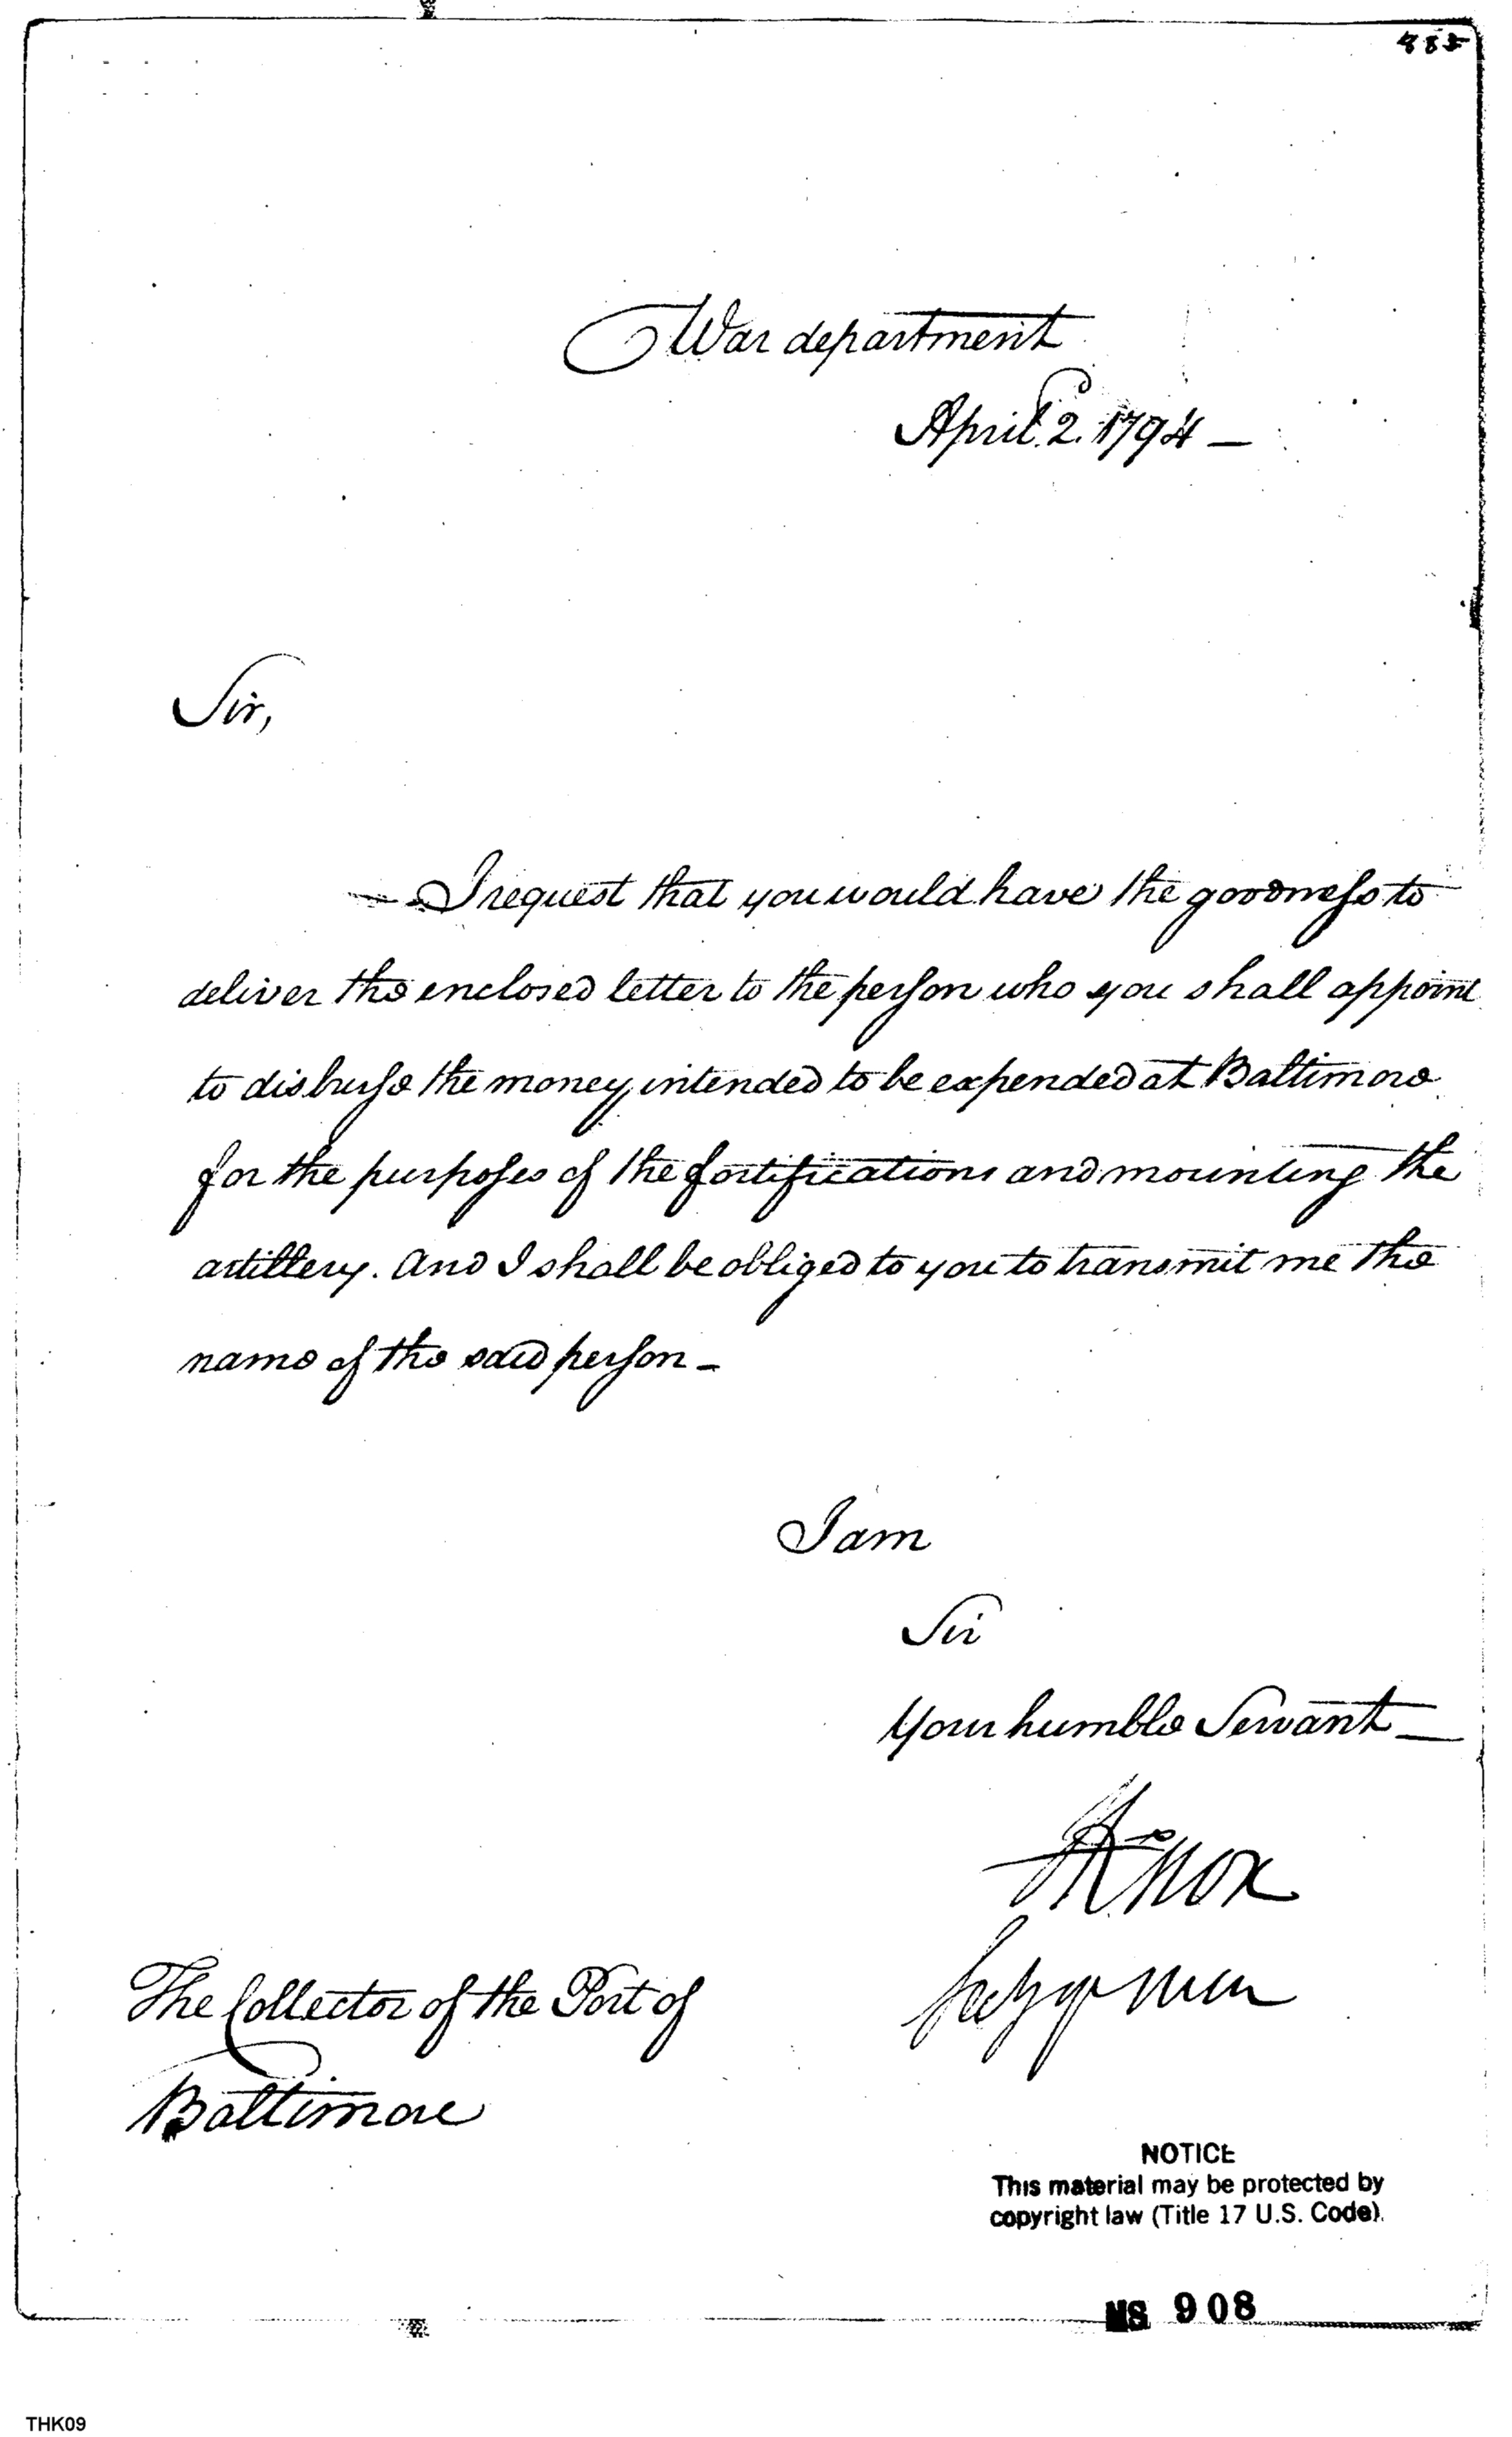 War department
April 2. 1794 —
Sir,
I request that you would have the goodneſs to
deliver the enclosed letter to the perſon who you shall appoint
to disburſe the money, intended to be expended at Baltimore
for the purpoſes of the fortifications and mounting the
artillery. And I shall be obliged to you to transmit me the
name of the said perſon –
I am
Sir
Your humble Servant —
HKnox
Secy of War
The Collector of the Port of
Baltimore
NOTICE
This material may be protected by
copyright law (Title 17 U.S. Code).
MS 908
THK09